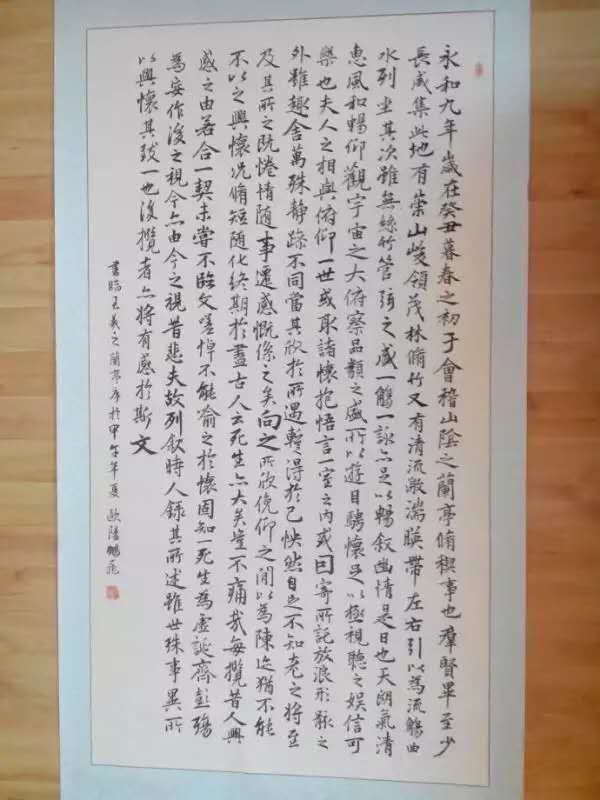 永和九年歲在癸丑暮春之初于會稽山陰之蘭亭脩稧事也羣賢畢至少
長咸集此地有崇山峻領茂林脩竹又有清流激湍暎帶左右引以為流觴曲
水列坐其次雖無絲竹管弦之盛一觴一詠亦足以暢叙幽情是日也天朗氣清
惠風和暢仰觀宇宙之大俯察品類之盛所以遊目騁懷足以極視聽之娛信可
樂也夫人之相與俯仰一世或取諸懷抱悟言一室之內或因寄所託放浪形骸之
外雖趣舍萬殊靜躁不同當其欣於所遇蹔得於己怏然自足不知老之將至
及其所之既惓情隨事遷感慨係之矣向之所欣俛仰之閒以為陳迹猶不能
不以之興懷況脩短隨化終期於盡古人云死生亦大矣豈不痛哉每攬昔人興
感之由若合一契未嘗不臨文嗟悼不能喻之於懷固知一死生為虛誕齊彭殤
為妄作後之視今亦由今之視昔悲夫故列叙時人錄其所述雖世殊事異所
以興懷其致一也後攬者亦將有感於斯文
書臨王羲之蘭亭序於甲午年夏 歐陽鵬飛